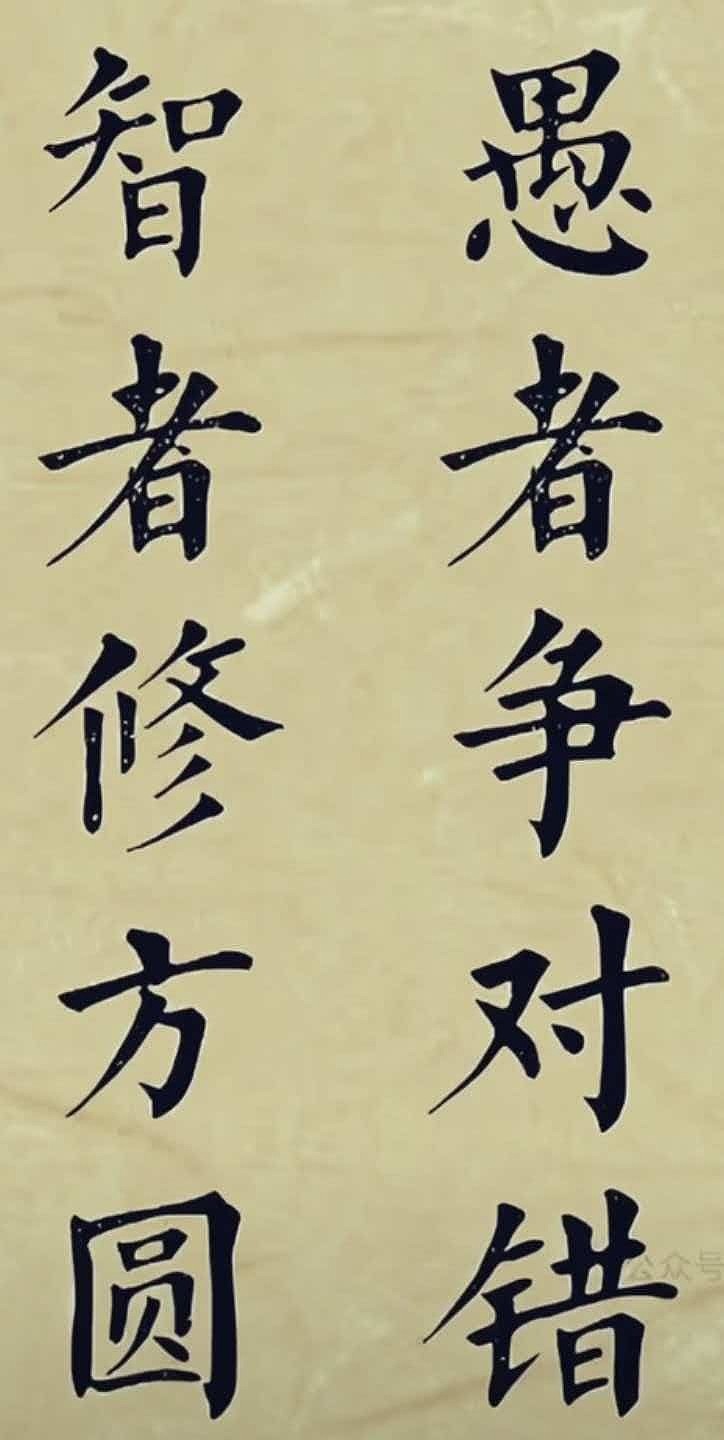 愚者争对错
智者修方圆
公众号